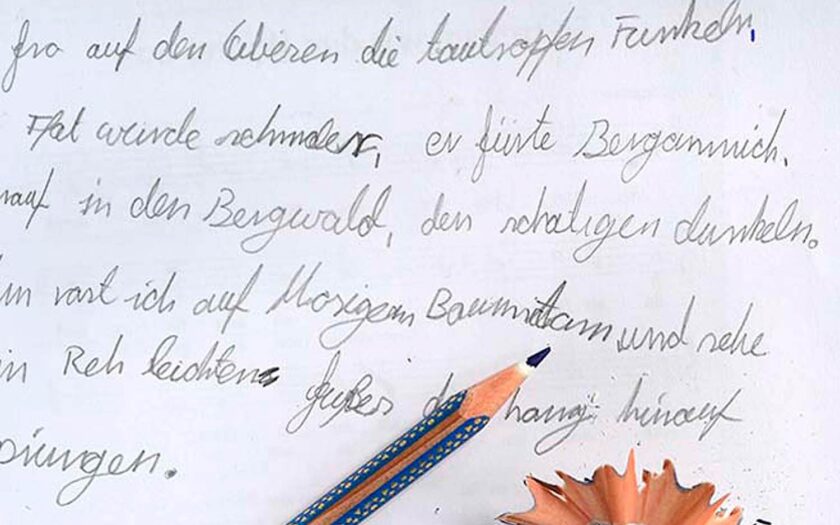 fro auf den Gbieren die tautropfen Funkeln,
Pfat wurde schmaler, er fürte Berganmich.
rauf in den Bergwald, den schatigen dunkeln.
rast ich auf Mosigem Baumstam und sehe
in Reh leichtens fußes den hang hinauf
pringen.